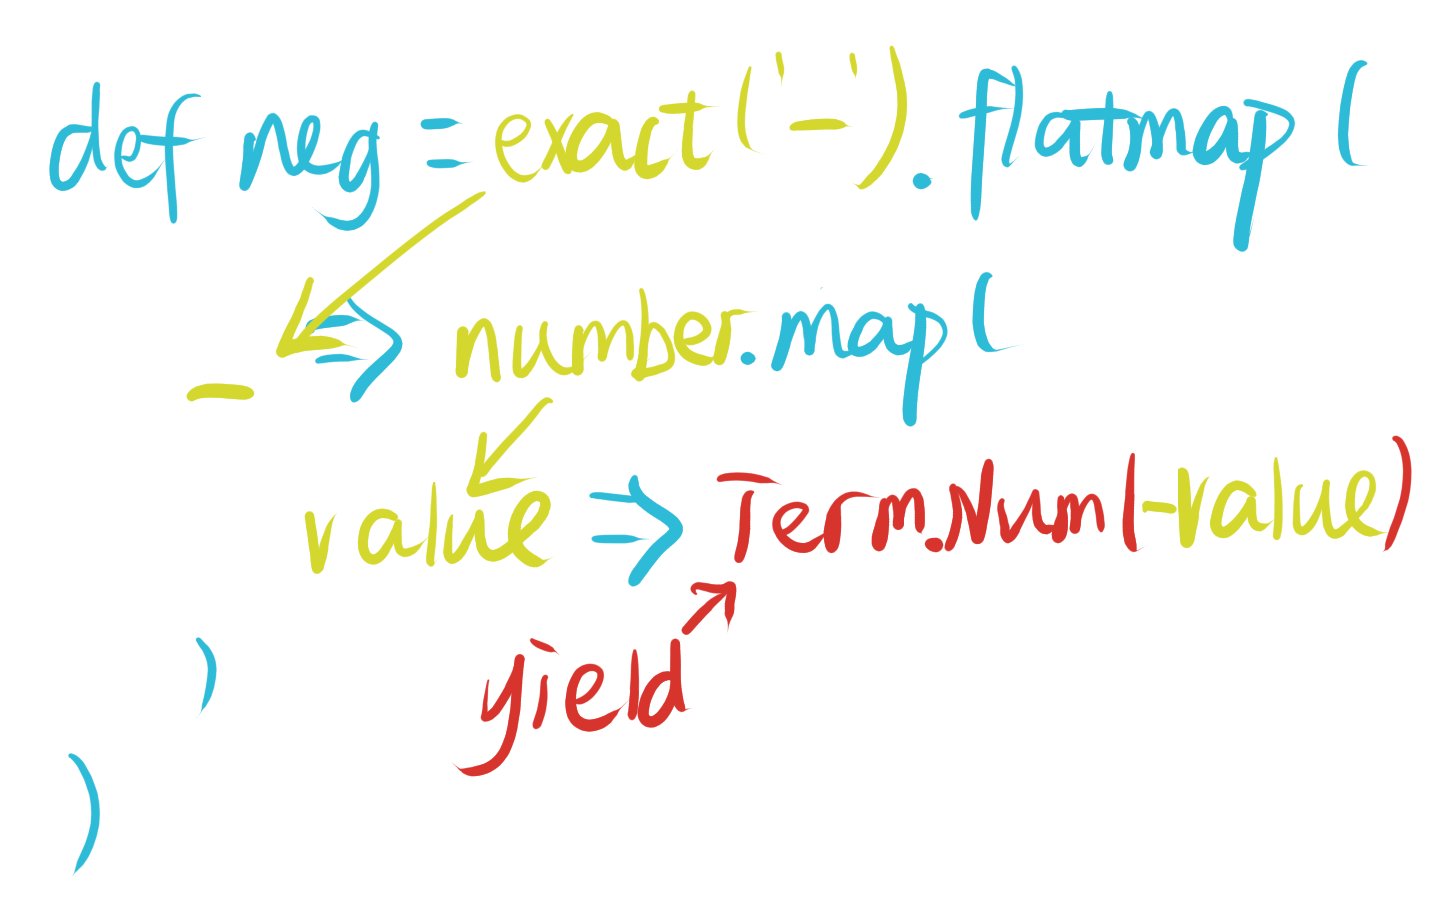 def neg = exact('-').flatmap(
_ => number.map(
value => Term.Num(-value)
) yield
)